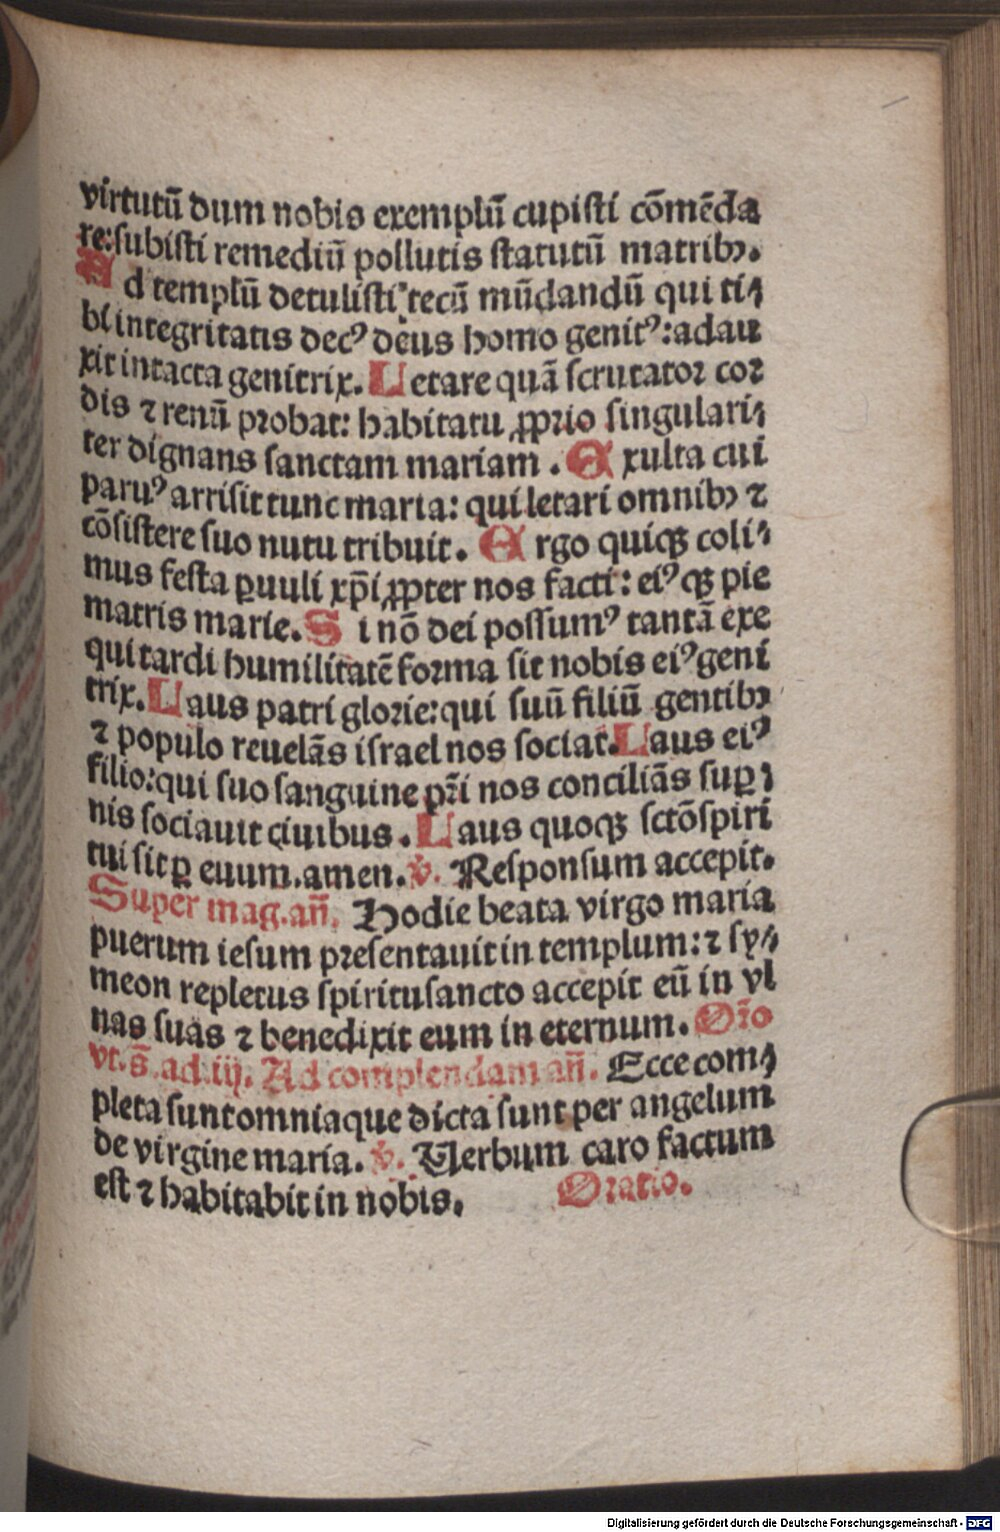 virtutū dum nobis exemplū cupisti cōmēda
re:subisti remediū pollutis statutū matribꝰ.
Ad templū detulisti tecū mūdandū qui ti⸗
bi integritatis decꝰ deus homo genitꝰ:adau
xit intacta genitrix. Letare quā scrutator cor
dis ⁊ renū probat: habitatu ꝓprio singulari⸗
ter dignans sanctam mariam . Exulta cui
paruꝰ arrisit tunc maria: qui letari omnibꝰ ⁊
cōsistere suo nutu tribuit. Ergo quiqꝫ coli⸗
mus festa ꝑuuli xp̄i ꝓpter nos facti: eiꝰqꝫ pie
matris marie. Si nō dei possumꝰ tantā exe
qui tardi humilitatē forma sit nobis eiꝰ geni
trix. Laus patri glorie:qui suū filiū gentibꝰ
⁊ populo reuelās israel nos sociat. Laus eiꝰ
filio:qui suo sanguine pr̄i nos conciliās suꝑ⸗
nis sociauit ciuibus . Laus quoqꝫ sctō spiri
tui sit ꝑ euum.amen. ℣. Responsum accepit.
Super mag.an̄. Hodie beata virgo maria
puerum iesum presentauit in templum: ⁊ sy⸗
meon repletus spiritusancto accepit eū in vl
nas suas ⁊ benedixit eum in eternum. Or̄o
vt.s̄.ad.iij. Ad complendam an̄. Ecce com⸗
pleta sunt omnia que dicta sunt per angelum
de virgine maria. ℣. Verbum caro factum
est ⁊ habitabit in nobis. Oratio.
Digitalisierung gefördert durch die Deutsche Forschungsgemeinschaft - DFG